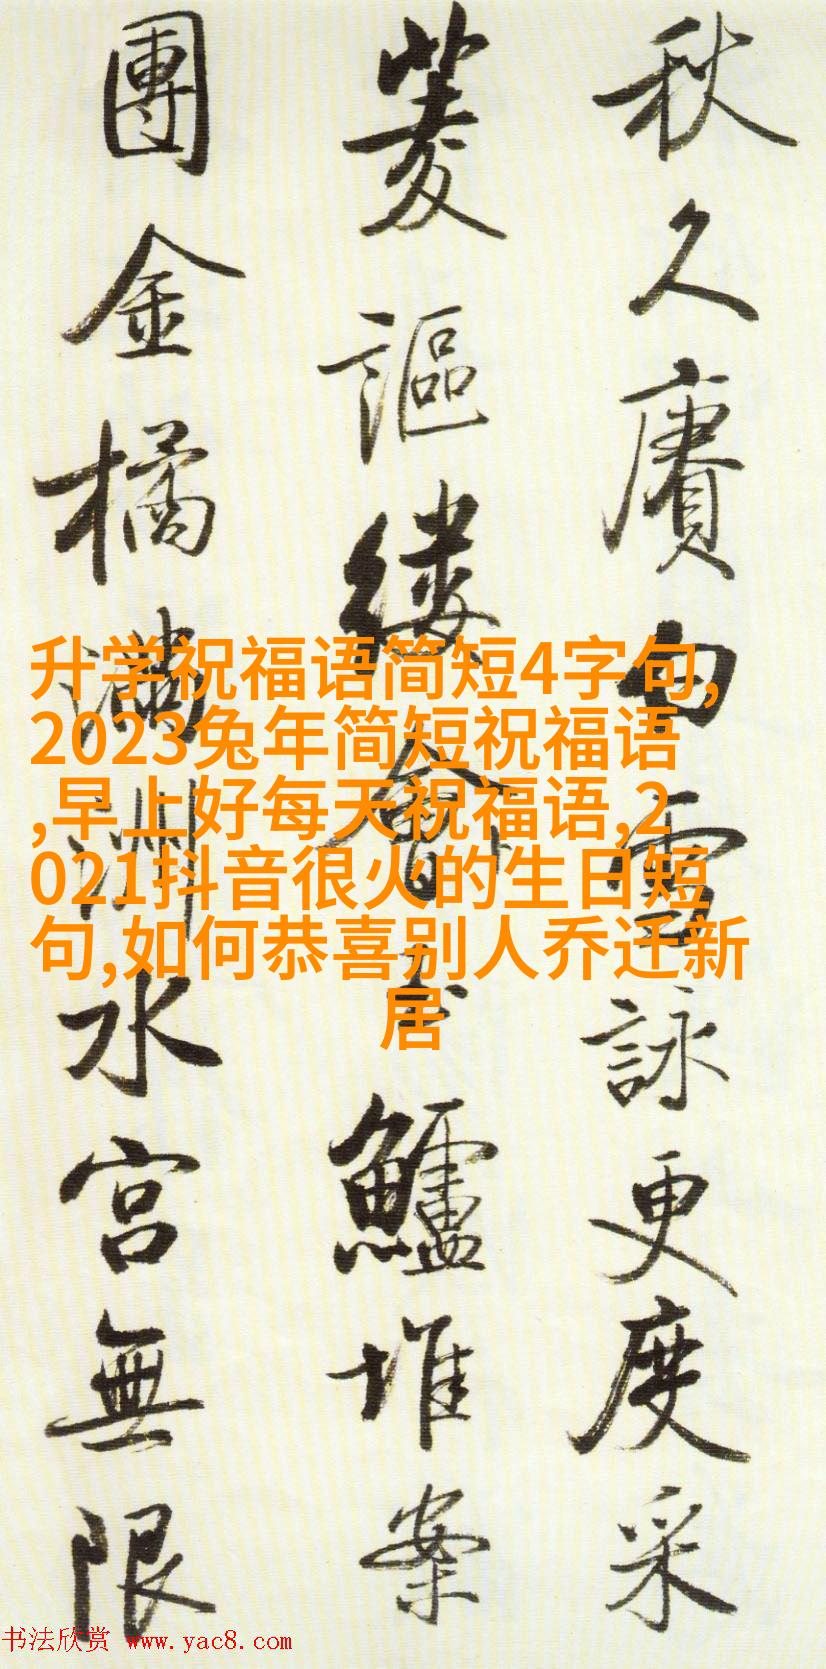 秋久賡白雪詠更度采
菱謳縷會玉鱸堆案
團金橘滿洲水宮無限
升学祝福语简短4字句,
2023兔年简短祝福语
,早上好每天祝福语,2
021抖音很火的生日短
句,如何恭喜别人乔迁新
居
书法欣赏 www.yac8.com